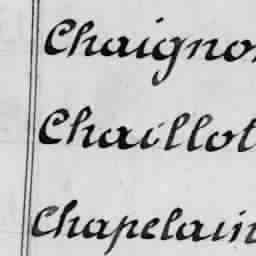 Chaigno
Chaillot
Chapelain